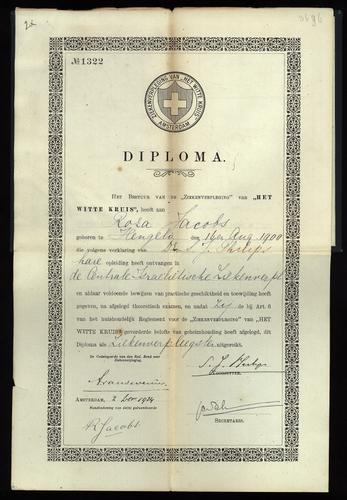 No 1322
ZIEKENVERPLEGING VAN "HET WITTE KRUIS"
AMSTERDAM
DIPLOMA.
HET BESTUUR VAN DE „ZIEKENVERPLEGING" VAN „HET
WITTE KRUIS", heeft aan
Rosa Jacobs
geboren te Hengelo den 16en Aug. 1900
die volgens verklaring van
hare opleiding heeft ontvangen in
de Centrale Israelitische Ziekenverpl
en aldaar voldoende bewijzen van practische geschiktheid en toewijding heeft
gegeven, na afgelegd theoretisch examen, en nadat zij de bij Art. 6
van het huishoudelijk Reglement voor de „ZIEKENVERPLEGING" van „HET
WITTE KRUIS" gevorderde belofte van geheimhouding heeft afgelegd, dit
Diploma als Ziekenverpleegster uitgereikt.
De Gedelegeerde van den Ned. Bond voor
Ziekenverpleging,
VOORZITTER.
AMSTERDAM, 2 1924
Handteekening der gediplomeerde
R Jacobs
SECRETARIS.